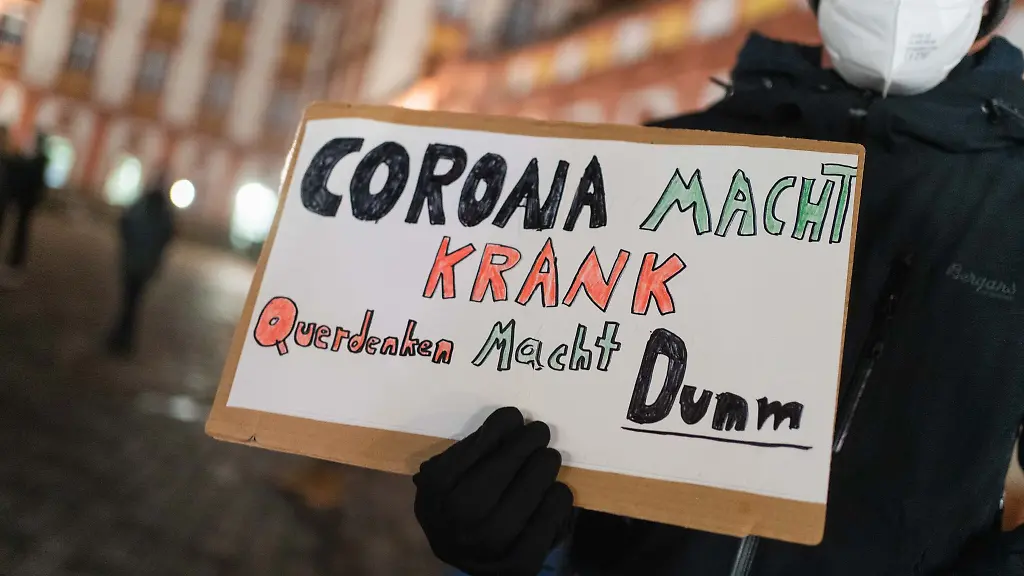 CORONA MACHT
KRANK
Querdenken Macht
Dumm
Bergans